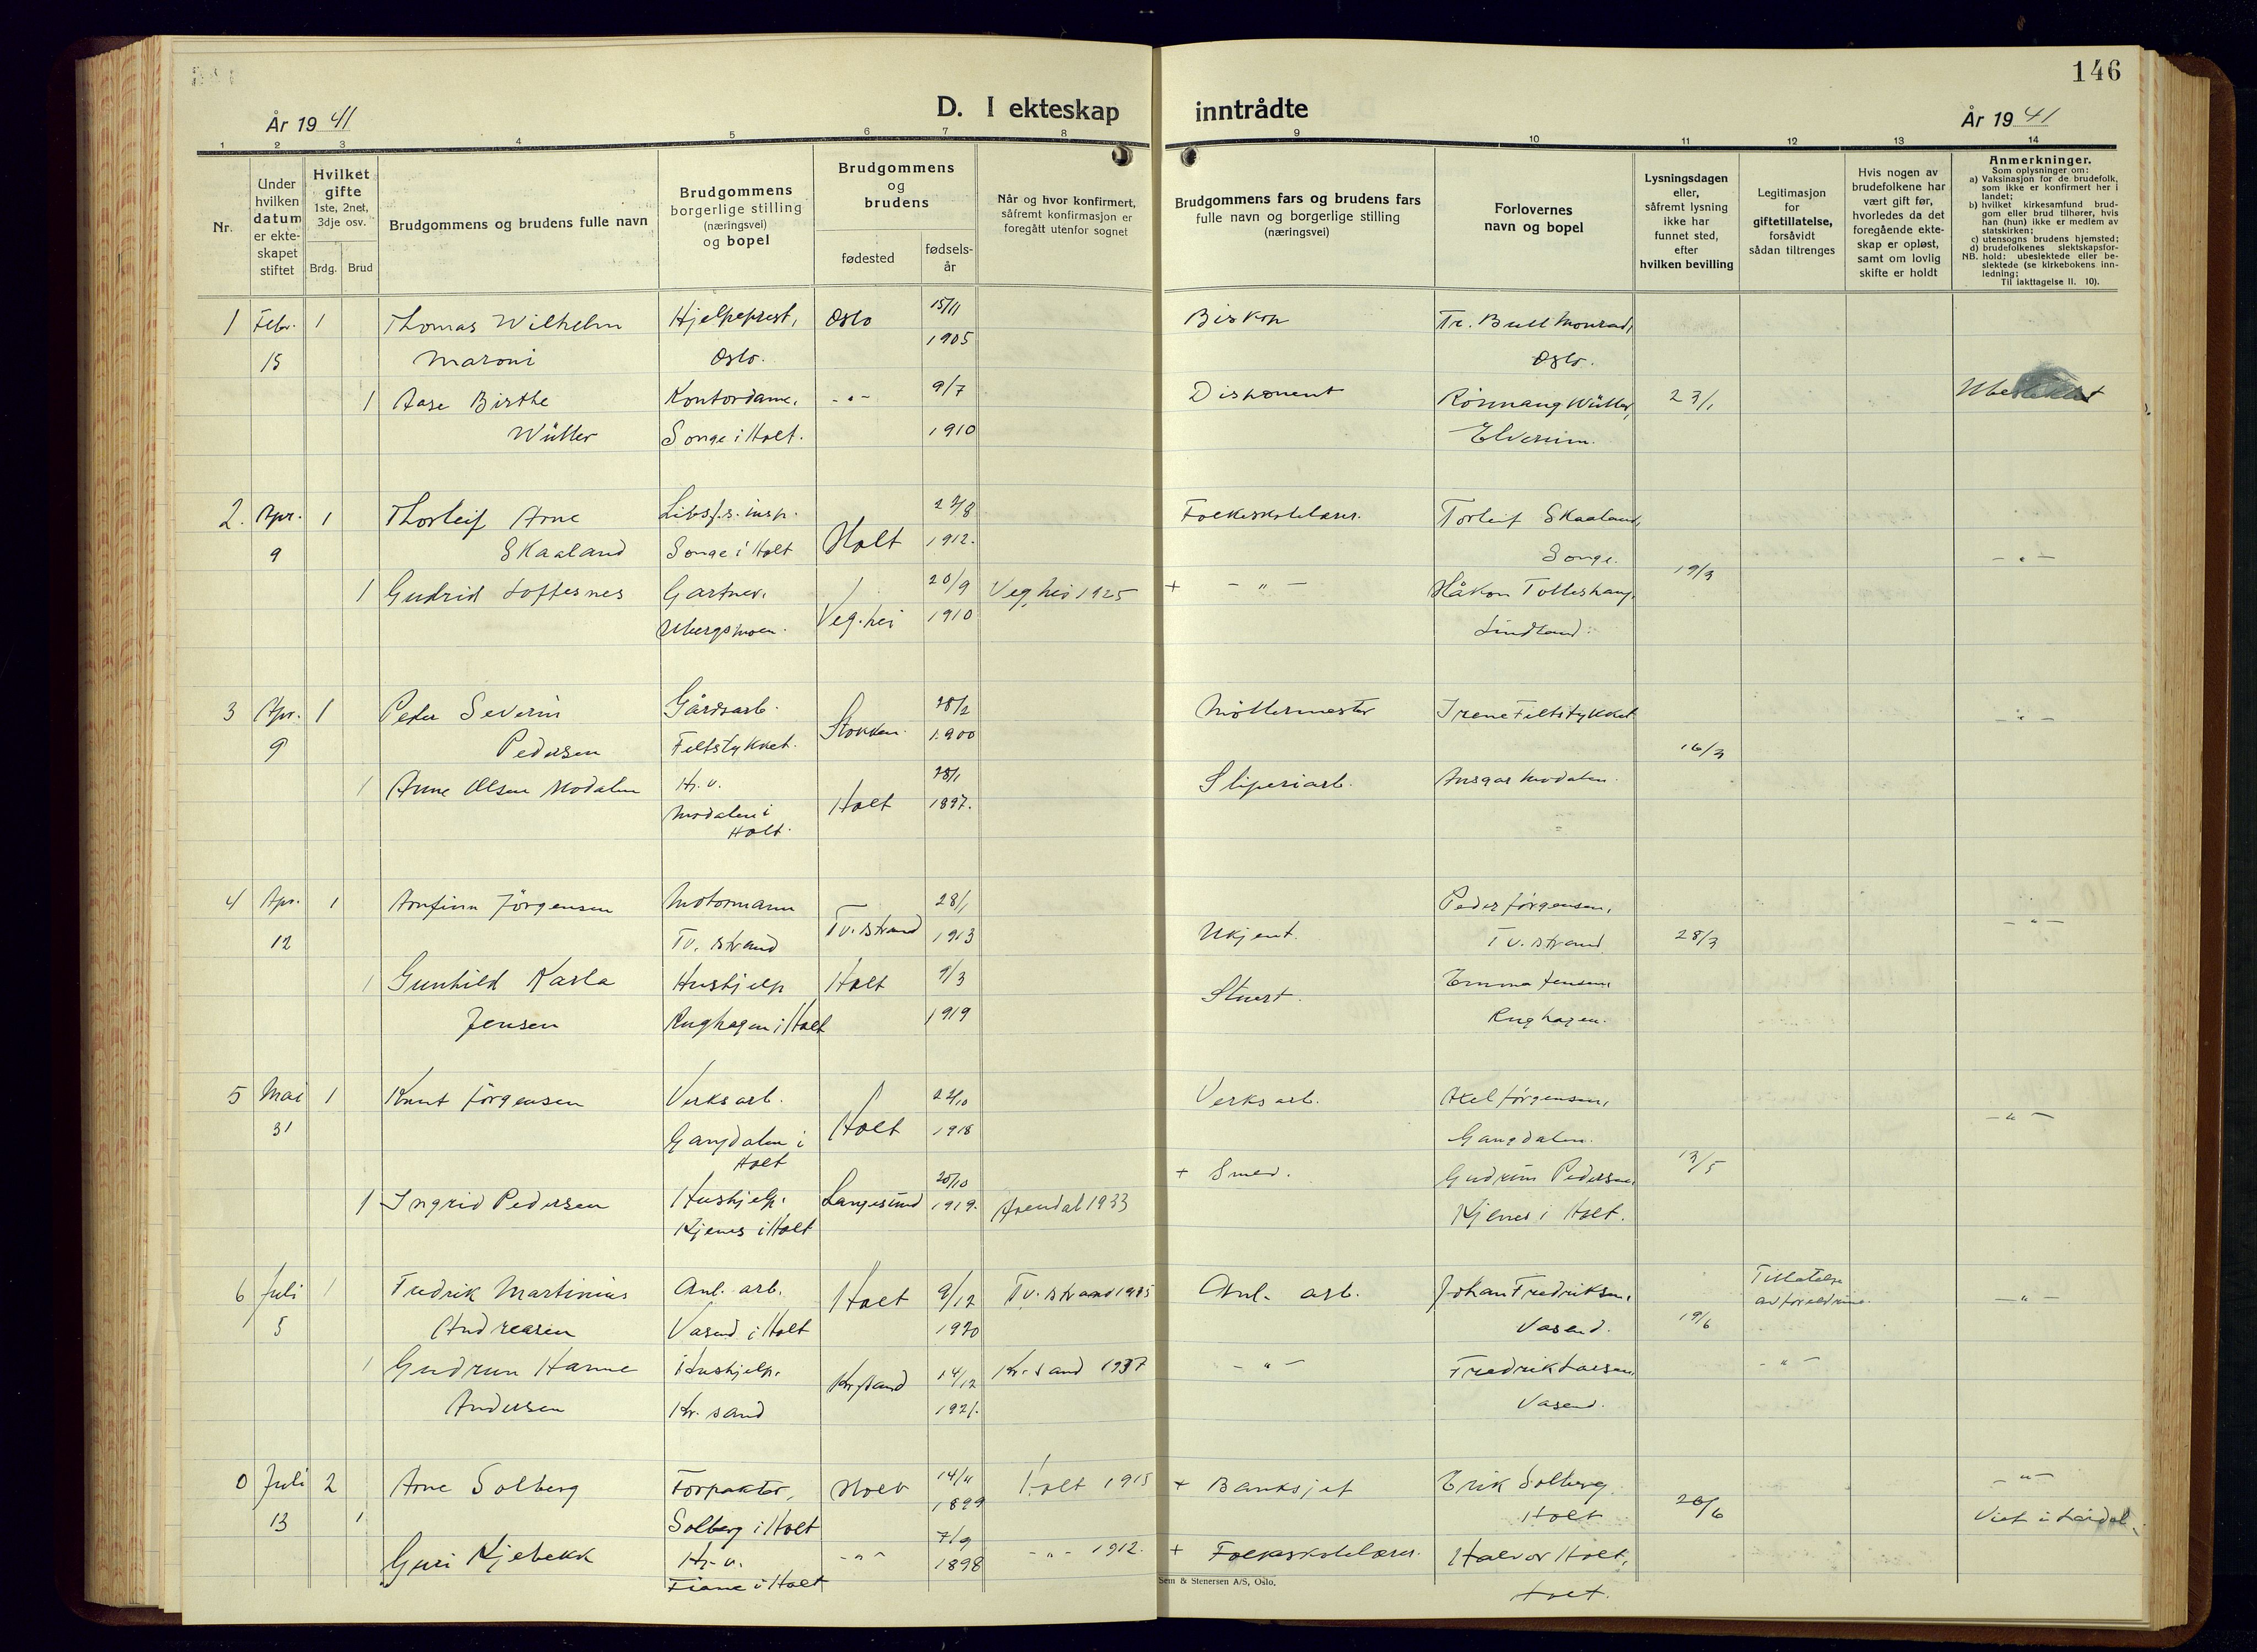 146
År 19 41
D. I ekteskap inntrådte
År 19 41
1 2 3 4 5 6 7 8 9 10 11 12 13 14
Nr.
Under hvilken datum er ekteskapet stiftet
Hvilket gifte 1ste, 2net, 3dje osv.
Brdg. Brud
Brudgommens og brudens fulle navn
Brudgommens borgerlige stilling (næringsvei) og bopel
Brudgommens og brudens
fødested
fødsels-år
Når og hvor konfirmert, såfremt konfirmasjon er foregått utenfor sognet
Brudgommens fars og brudens fars fulle navn og borgerlige stilling (næringsvei)
Forlovernes navn og bopel
Lysningsdagen eller, såfremt lysning ikke har funnet sted, efter hvilken bevilling
Legitimasjon for giftetillatelse, forsåvidt sådan tiltrenges
Hvis nogen av brudefolkene har vært gift før, hvorledes da det foregående ekteskap er opløst, samt om lovlig skifte er holdt
Anmerkninger.
Som oplysninger om:
a) Vaksinasjon for de brudefolk, som ikke er konfirmert her i landet;
b) hvilket kirkesamfund brudgom eller brud tilhører, hvis han (hun) ikke er medlem av statskirken;
c) utensogns brudens hjemsted;
d) brudefolkenes slektskapsforhold: ubeslektede eller beslektede (se kirkebokens innledning;
NB.
Til iakttagelse II. 10).
1 Febr. 1 Thomas Wilhelm Hjelpeprest, Oslo 15/11 Biskop Fr. Bull Monrad,
15 Maroni Oslo. 1905 Oslo.
1 Aase Birthe Kontordame, - " - 9/7 Disponent Wüller, 23/1
Wüller Songe i Holt. 1910 Elverum.
2. Apr. 1 Thorleif Arne Folkeskolelærer. Torleif Skaaland,
9 Skaaland Songe i Holt Holt 1912. Songe. 19/3 - " -
1 Gudrid Loftesnes Gartner. Veg.hei 20/9 1910 Veg.hei 1925 + - " - Håkon
Ubergsmoen. Lindland.
3 Apr. 1 Peder Severin Gårdsarb. Stokken. 1900 Møllermester Irene Feltstykket - " -
9 Pedersen Feltstykket. 16/3
1 Anne Olsen Modalen H. v. Holt 1897. Sliperiarb. Ansgar Modalen.
Modalen i Holt.
4 Apr. 1 Arnfinn Jörgensen Motormann Tv.strand 28/1 Peder Jörgensen,
12 Tv. strand 1913 Ukjent. Tv. strand 28/3 - " -
1 Gunhild Karla Hushjelp Holt 9/3 Stuert. Emma Jensen,
Jensen Rughagen i Holt 1919 Rughagen.
5 Mai 1 Knut Jörgensen Verksarb. Holt 1918 Verksarb. Axel Jörgensen, - " -
31 Gangdalen i Holt Gangdalen.
1 Ingrid Pedersen Hushjelp. Langesund 1919. Arendal 1933 + Smed. Gudrun Pedersen, 13/5
Kjenes i Holt Kjenes i Holt.
6 Juli 1 Fredrik Martinius Anl. arb. Holt 9/12 Tv. strand 1935 Anl. arb. Johan Fredriksen, Tillatelse av foreldrene. - " -
5 Andreasen Vasend i Holt 1920 Vasend. 19/6
1 Gudrun Hanne Hushjelp. Kr.sand 14/12 Kr.sand 1937 - " - Fredrik Larsen, - " -
Andersen Kr. sand 1921. Vasend.
0 Juli 2 Arne Solberg Forpakter, Holt 14/11 Holt 1915 + Banksjef Erik Solberg - " -
13 1 Solberg i Holt 1899 Holt 20/6 Viet i
Guri Kjebekk H. v. - " - 7/9 1898 - " - 1912. + Folkeskolelærer. Halvor Holt,
Fiane i Holt Holt.
Sem & Stenersen A/S, Oslo.